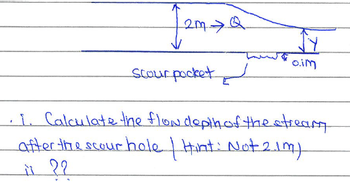 2m → Q
Y
0.1m
scour pocket
. i. Calculate the flow depth of the stream
after the scour hole ( Hint: Not 2.1m)
ii ??